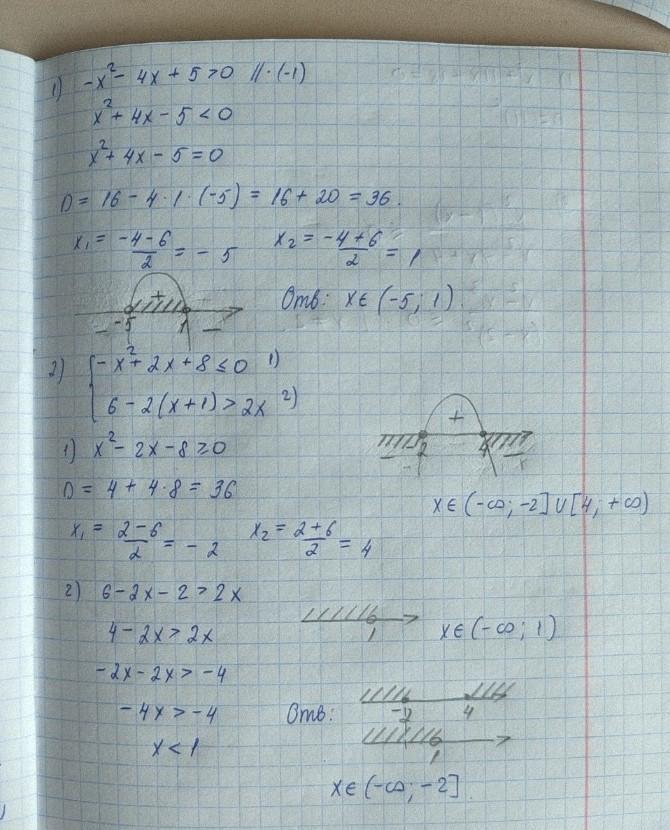 1) -x² - 4x + 5 > 0 // · (-1)
x² + 4x - 5 < 0
x² + 4x - 5 = 0
D = 16 - 4 · 1 · (-5) = 16 + 20 = 36.
x₁ = (-4-6)/2 = - 5 x₂ = (-4+6)/2 = 1
+
- -5 1 -
Отв: x ∈ (-5; 1).
2) { -x² + 2x + 8 ≤ 0 1)
6 - 2(x+1) > 2x 2)
1) x² - 2x - 8 ≥ 0
D = 4 + 4 · 8 = 36
x₁ = (2-6)/2 = - 2 x₂ = (2+6)/2 = 4
+
- -2 4 -
x ∈ (-∞; -2] ∪ [4; +∞)
2) 6 - 2x - 2 > 2x
4 - 2x > 2x
-2x - 2x > -4
-4x > -4
x < 1
1
x ∈ (-∞; 1)
Отв:
-2 4
1
x ∈ (-∞; -2]